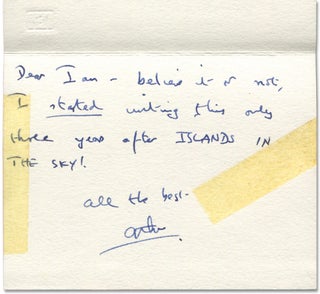 Dear Ian - believe it or not,
I started writing this only
three year after ISLANDS IN
THE SKY!
all the best-
Arthur